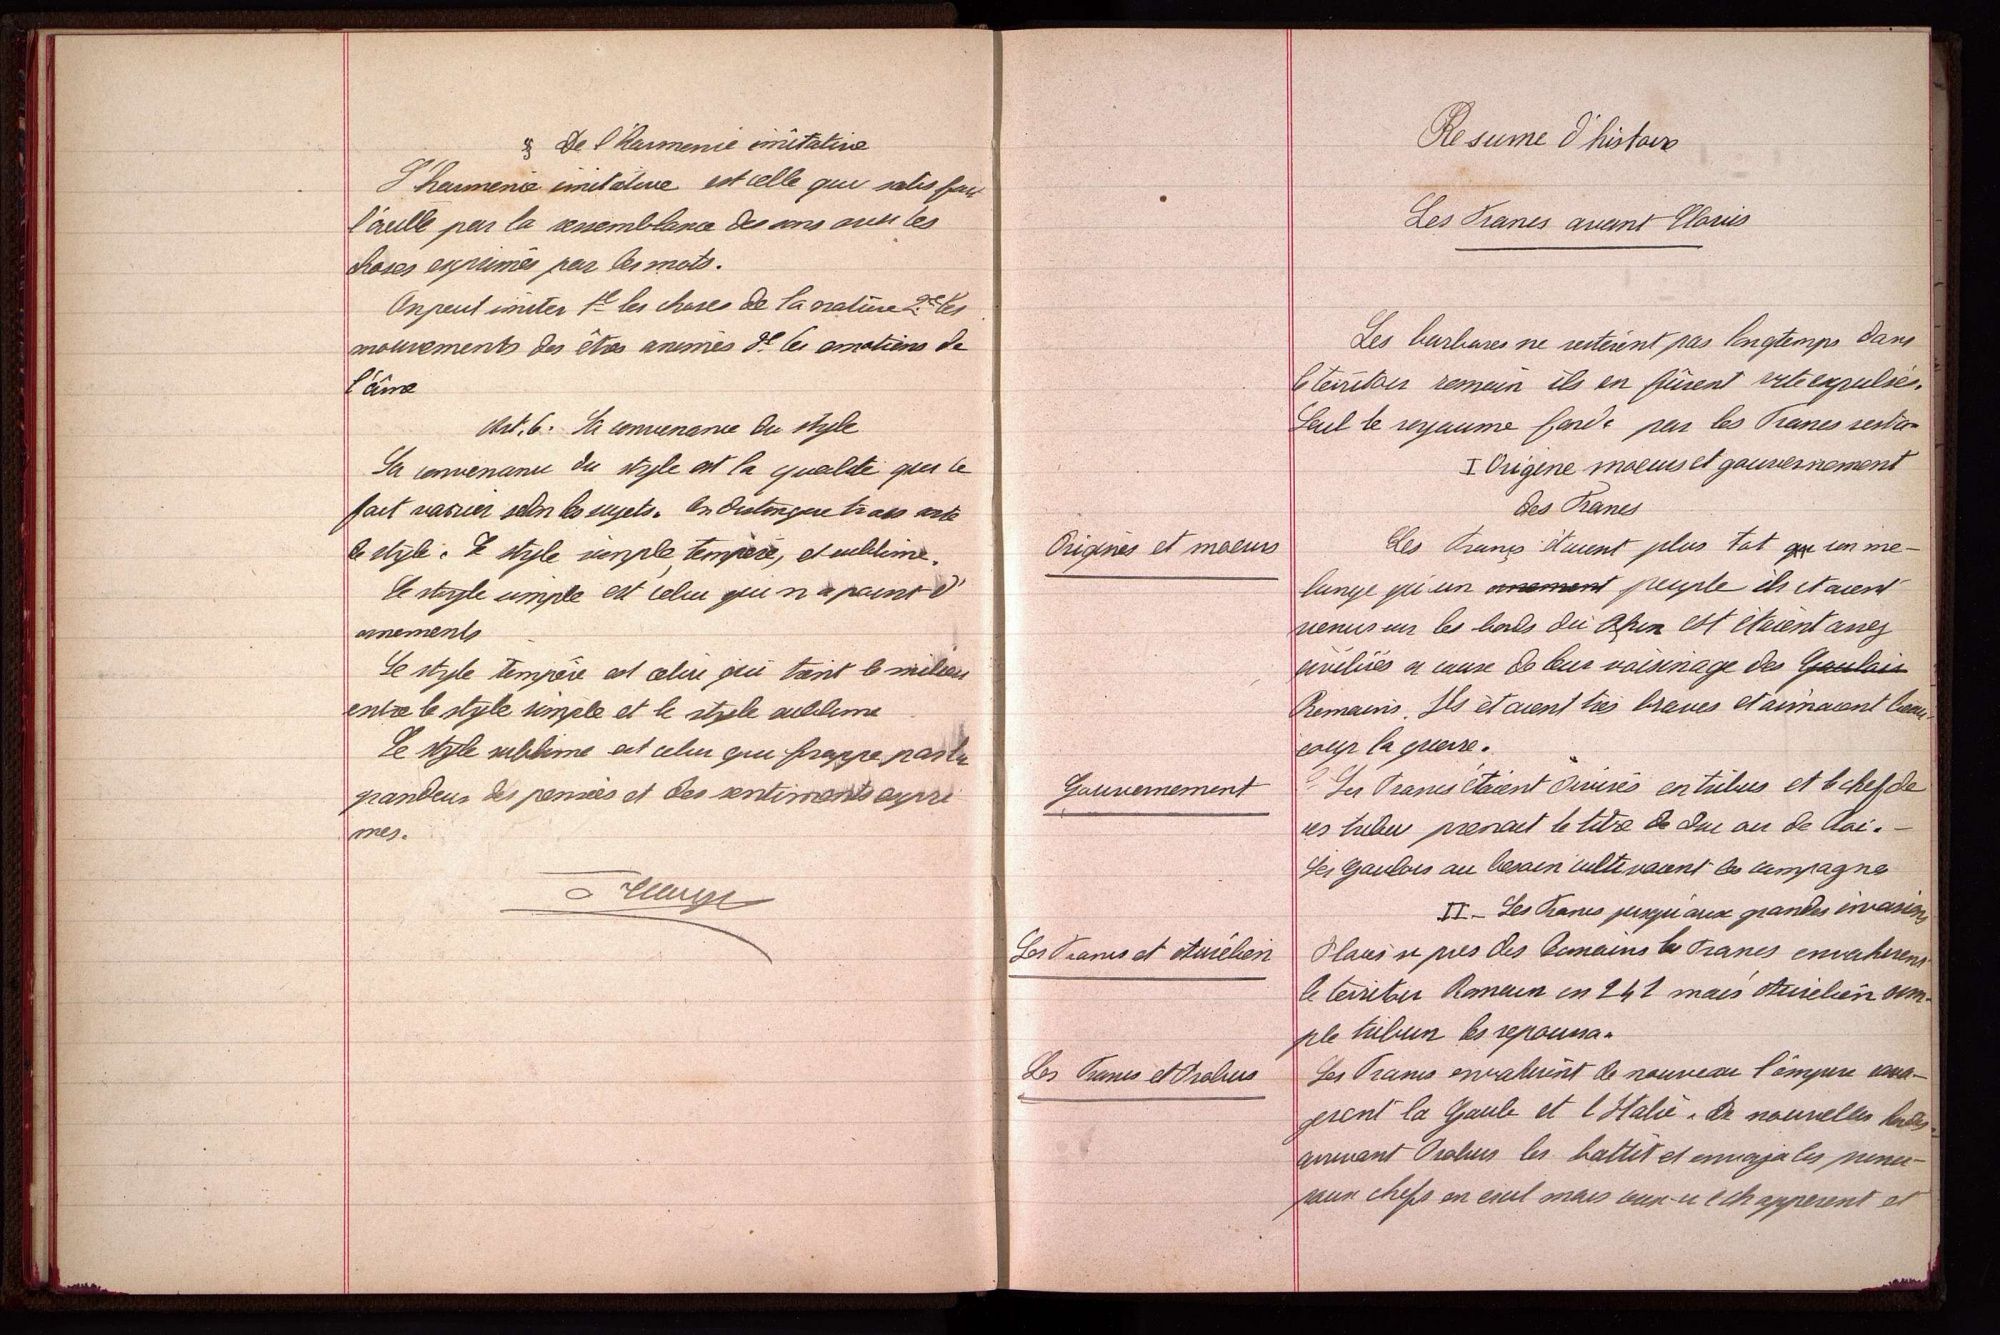 § De l'Harmonie imitative
L'harmonie imitative est celle qui satisfait
l'oreille par la ressemblance des sons avec les
choses exprimés par les mots.
On peut imiter 1e les choses de la nature 2e les
mouvements des êtres animés 3e les emotions de
l'âme
Art. 6. La convenance du style
La convenance du style est la qualité qui le
fait varier selon les sujets. On distingue trois sorte
de style. Le style simple, tempéré, et sublime.
Le style simple est celui qui n'a point d'
ornements
Le style tempéré est celui qui tient le milieu
entre le style simple et le style sublime
Le style sublime est celui qui frappe par la
grandeur des pensées et des sentiments expri
més.
Resume d'histoire
Les Francs avant Clovis
Les barbares ne restèrent pas longtemps dans
le territoire romain ils en fûrent vite expulsés.
Seul le royaume fondé par les Francs resta
I Origine moeurs et gouvernement
des Francs
Origines et moeurs
Les Francs étaient plus tot qu un me-
lange qu'un ornement peuple ils etaient
venus sur les bords du Rhin est étaient assez
civilisés a cause de leur voisinage des Gaulois
Romains. Ils étaient très braves et aimaient beau-
coup la guerre.
Gouvernement
Les Francs étaient divisés en tribus et le chef de
ces tribu prenait le titre de duc ou de Roi. -
Les Gaulois au besoin cultivaient les campagne
II - Les Francs jusqu'aux grandes invasions
Les Francs et Aurélien
Placés si pres des Romains les Francs envahirent
le territoire Romain en 241 mais Aurélien sim-
ple tribun les repoussa.
Les Francs et Probus
Les Francs envahirent de nouveau l'empire rava-
gerent la Gaule et l'Italie. De nouvelles hordes
arrivant Probus les battit et envoya les princi-
paux chefs en exil mais ceux-ci échapperent et